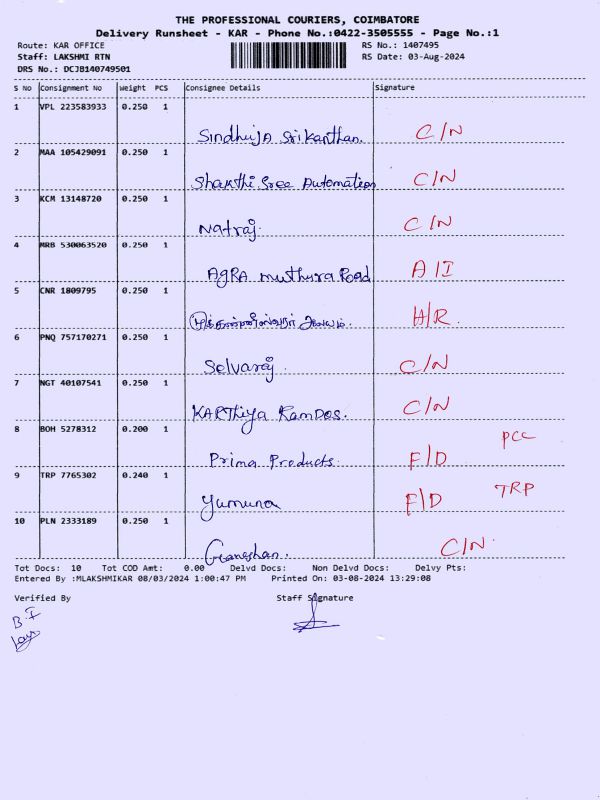 THE PROFESSIONAL COURIERS, COIMBATORE
Delivery Runsheet - KAR - Phone No.:0422-3505555 - Page No.:1
Route: KAR OFFICE RS No.: 1407495
Staff: LAKSHMI RTN RS Date: 03-Aug-2024
DRS No.: DCJB140749501
S No Consignment No Weight PCS Consignee Details Signature
1 VPL 223583933 0.250 1
Sindhuja Srikanthan. C/N
2 MAA 105429091 0.250 1
Shakthi Sree Automation C/N
3 KCM 13148720 0.250 1
Natraj. C/N
4 MRB 530063520 0.250 1
AgRA muthura Road A/I
5 CNR 1809795 0.250 1
H/R.
6 PNQ 757170271 0.250 1
Selvaraj. C/N
7 NGT 40107541 0.250 1
KARThiya RamDos. C/N
8 BOH 5278312 0.200 1
PCC
Prima Products. F/D
9 TRP 7765302 0.240 1
TRP
Yumuna F/D
10 PLN 2333189 0.250 1
C/N.
Tot Docs: 10 Tot COD Amt: 0.00 Delvd Docs: Non Delvd Docs: Delvy Pts:
Entered By :MLAKSHMIKAR 08/03/2024 1:00:47 PM Printed On: 03-08-2024 13:29:08
Verified By Staff Signature
B.I